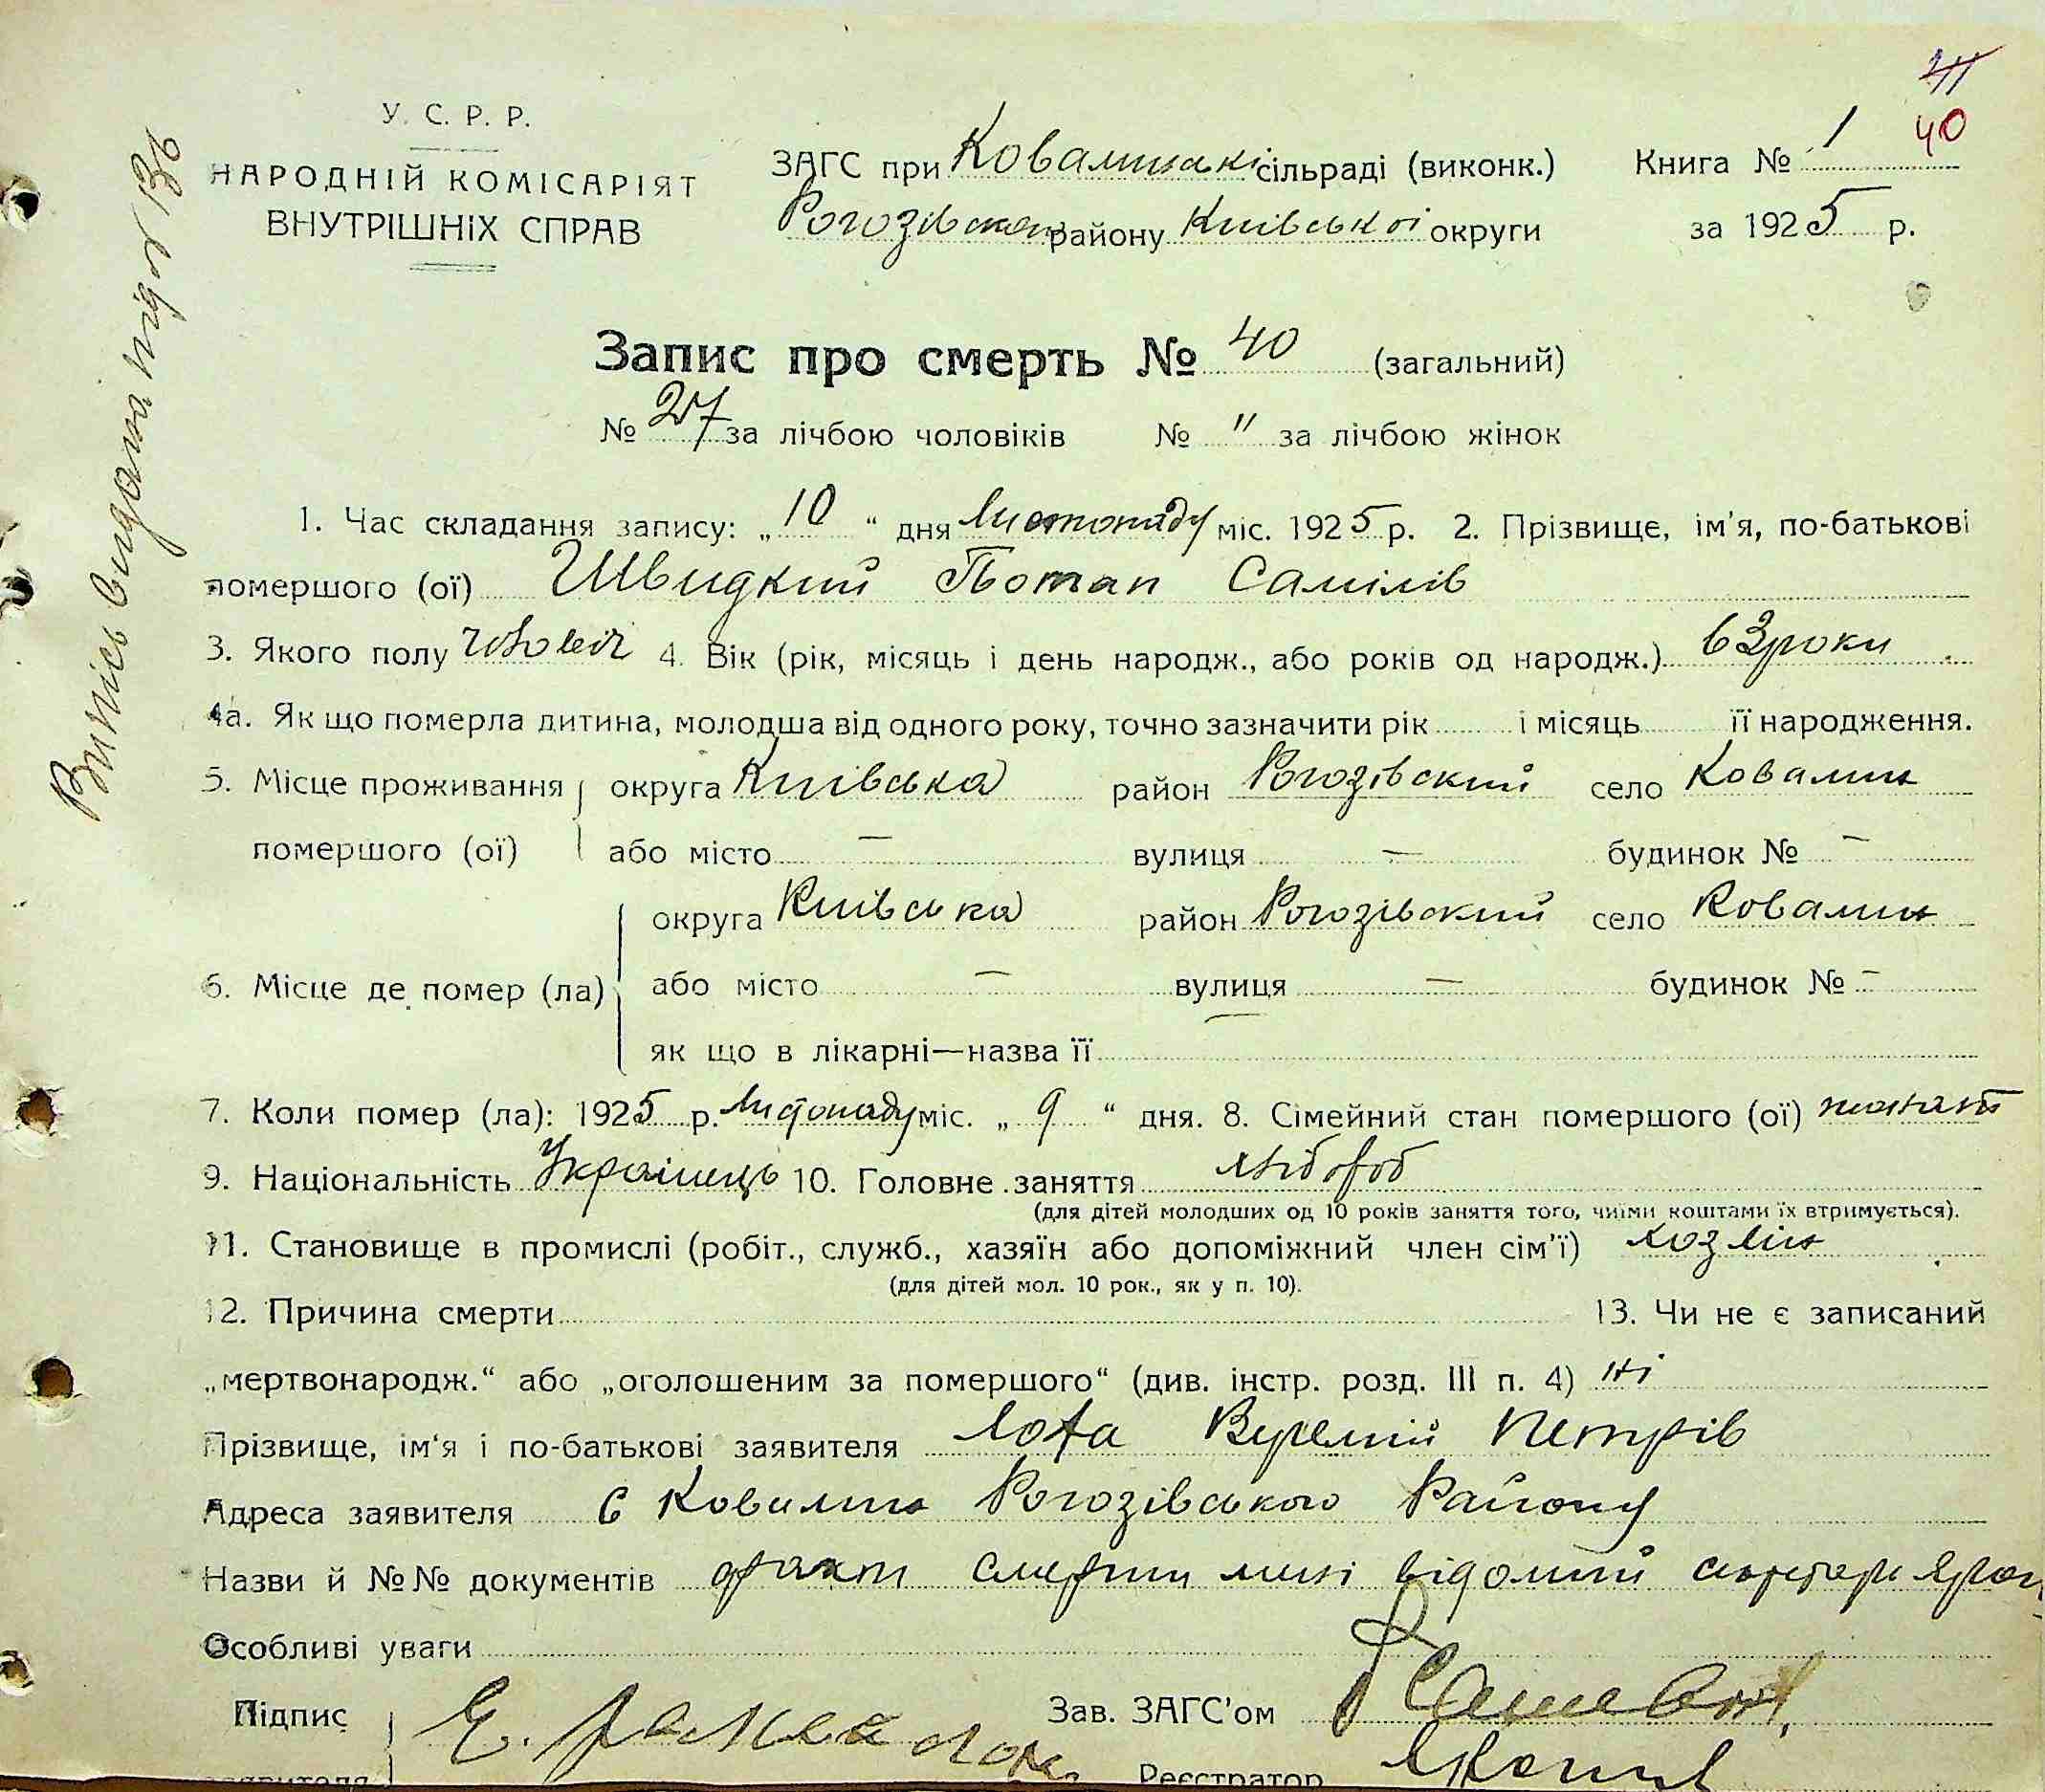 40
У. С. Р. Р.
НАРОДНІЙ КОМІСАРІЯТ
ВНУТРІШНІХ СПРАВ
ЗАГС при Ковалинські сільраді (виконк.) Книга № 1
Рогозівськ району Київської округи за 1925 р.
Випись видана під № 136
Запис про смерть № 40 (загальний)
№ 27 за лічбою чоловіків № " за лічбою жінок
1. Час складання запису: „10“ дня Листопаду міс. 1925 р. 2. Прізвище, ім'я, по-батькові
помершого (ої) Швидкий Потап Самілів
3. Якого полу чолов 4. Вік (рік, місяць і день народж., або років од народж.) 63 роки
4а. Як що померла дитина, молодша від одного року, точно зазначити рік і місяць її народження.
5. Місце проживання округа Київська район Рогозівский село Ковалин
помершого (ої) або місто — вулиця — будинок № —
округа Київська район Рогозівский село Ковалин
6. Місце де помер (ла) або місто — вулиця — будинок № —
як що в лікарні—назва її
7. Коли помер (ла): 1925 р. Листопаду міс. „9“ дня. 8. Сімейний стан помершого (ої) жонат
9. Національність Українець 10. Головне заняття хлібороб
(для дітей молодших од 10 років заняття того, чиїми коштами їх втримується).
11. Становище в промислі (робіт., служб., хазяїн або допоміжний член сім'ї) хозяїн
(для дітей мол. 10 рок., як у п. 10).
12. Причина смерти 13. Чи не є записаний
„мертвонародж.“ або „оголошеним за помершого“ (див. інстр. розд. III п. 4) ні
Прізвище, ім'я і по-батькові заявителя Петрів
Адреса заявителя С Ковалин Рогозівського Району
Назви й №№ документів факт смерти мині відомий
Особливі уваги
Підпис Зав. ЗАГС'ом
заявителя Реєстратор